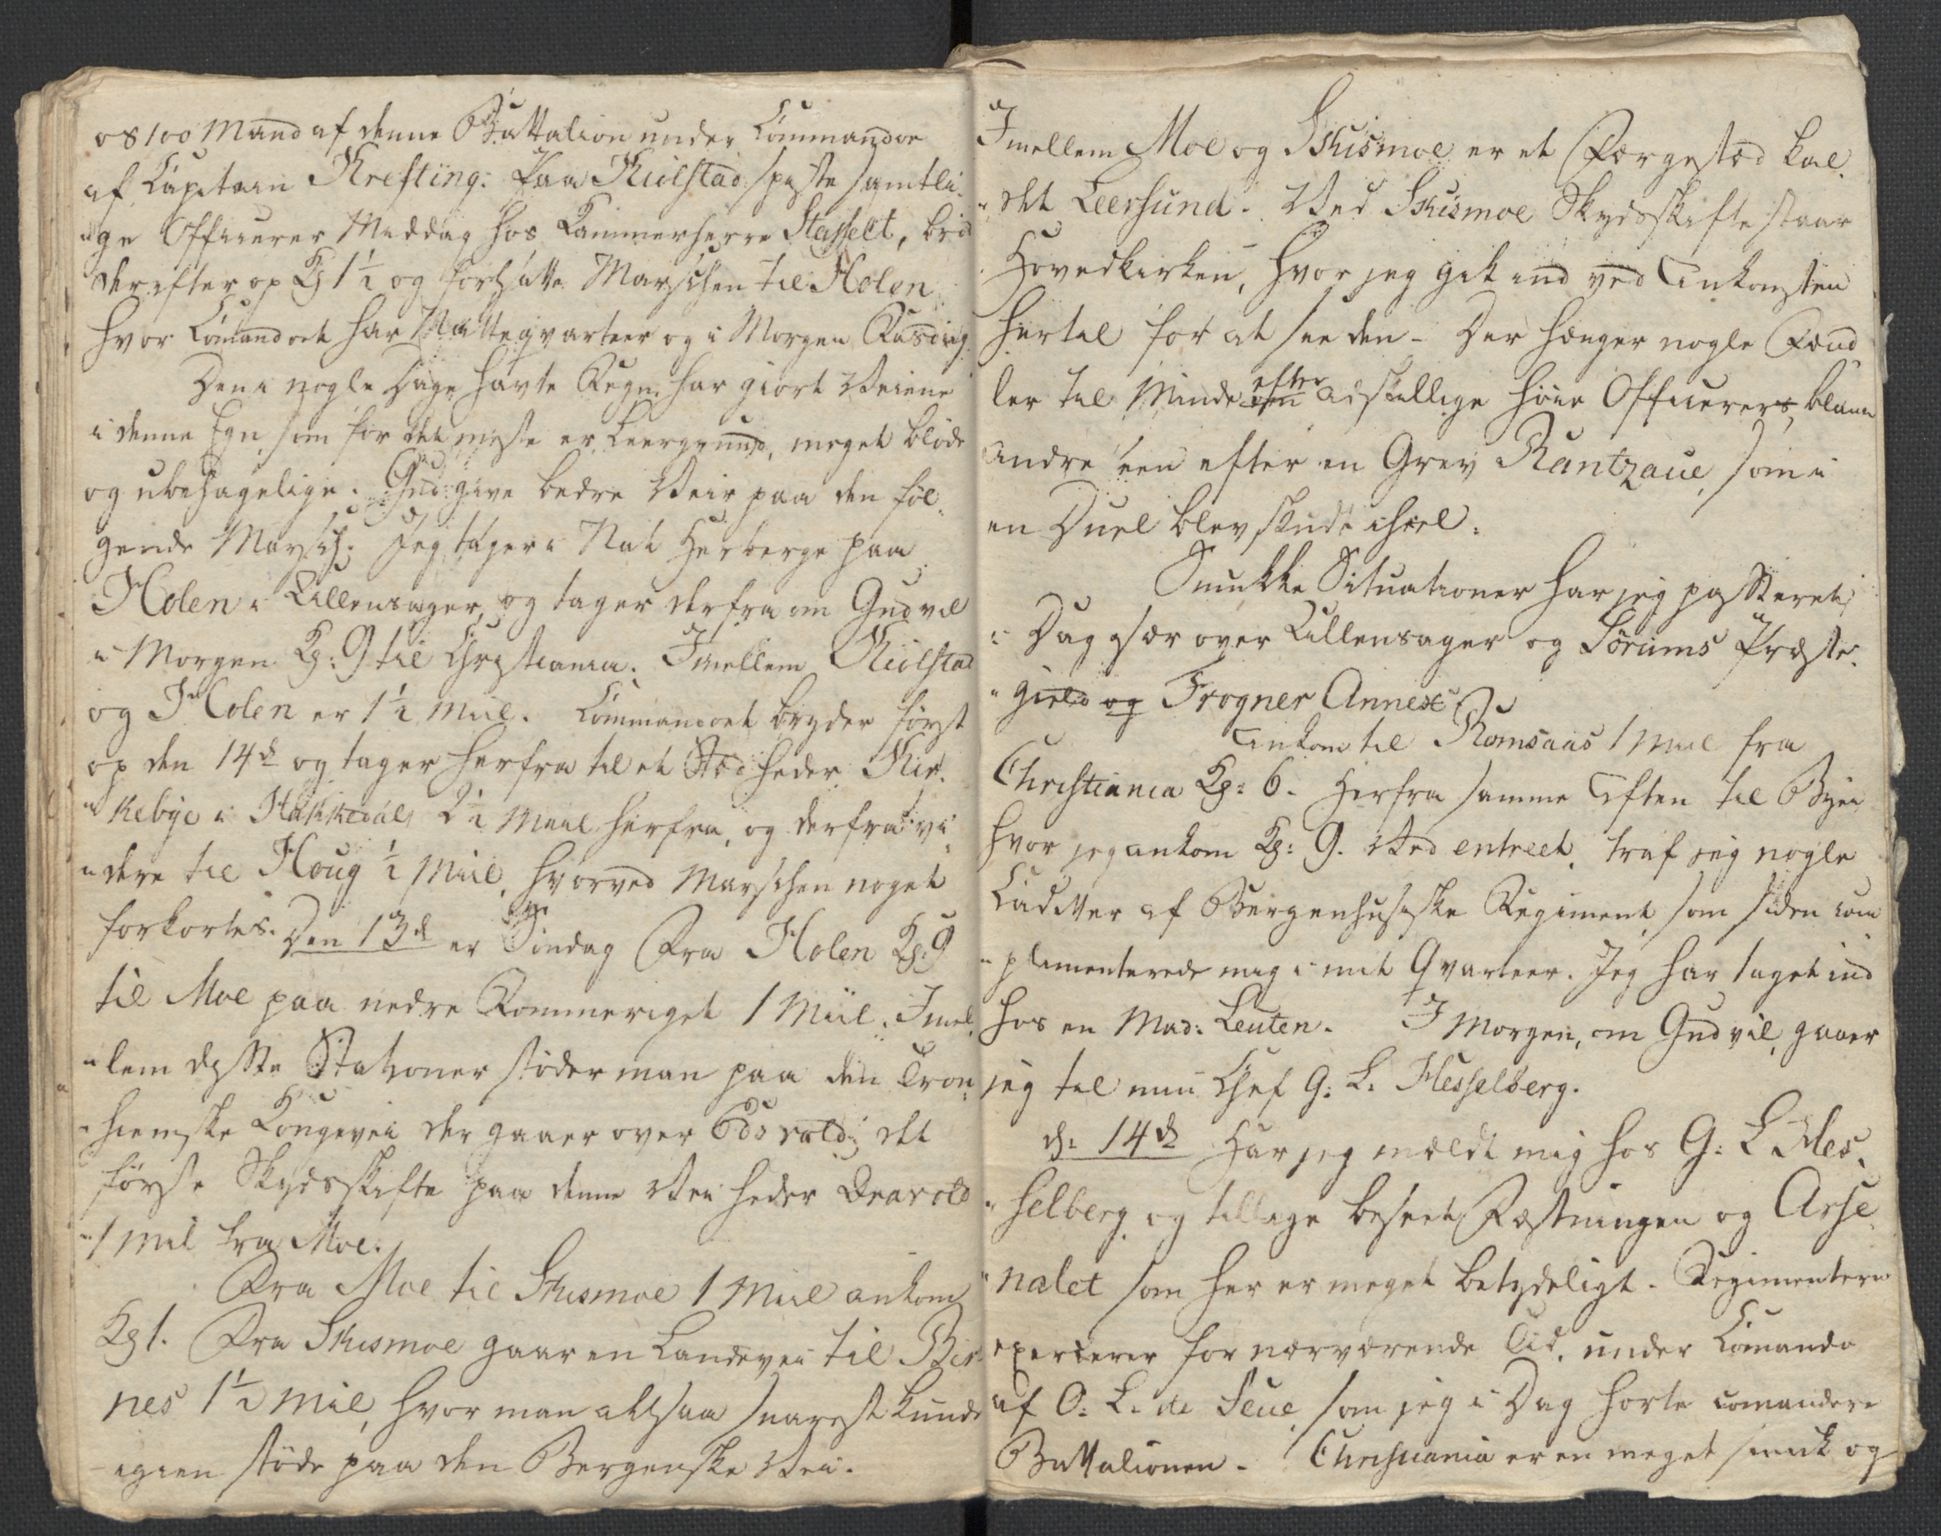 os 100 Mand af denne Battalion under Commandoe
af Capitain Krefting. Paa Kiilstad spiste samtli-
ge Officerer Middag hos Kammerherre Stasfelt, brød
derefter op Kl 1½ og forhsatte Marschen til Holen
hvor Comandoet har Natteqvarteer og i Morgen Rastdag.
Den i nogle Dage havte Regn har giort Veiene
i denne Egn, som for det meste er Leergrund, meget bløde
og ubehagelige. Gud give bedre Veir paa den føl-
gende Marsch. Jeg tager i Nat Herberge paa
Holen i Ullensager, og tager derfra om Gud vil
i Morgen Kl: 9 til Christiania. Imellem Kiilstad
og Holen er 1½ Miil. Commandoet bryder først
op den 14de og tager herfra til et Stæd heder Kir-
kebye i Hakkedal, 2½ Miil herfra, og derfra vi-
dere til Houg ½ Miil, hvorved Marschen noget
forkortes. Den 13de er Søndag Fra Holen Kl: 9
til Moe paa nedre Rommeriget 1 Miil. Imel-
lem disse Stationer støder man paa den Tron-
hiemske Kongevei der gaaer over Edsvold; det
første Skydsskifte paa denne Vei heder
1 Mil fra Moe.
Fra Moe til Skismoe 1 Miil ankom
Kl 1. Fra Skismoe gaar en Landevei til
nes 1½ Mil, hvor man altsaa snarest kunde
igien støde paa den Bergenske Vei.
Imellem Moe og Skismoe er et Færgestæd kal-
det Leersund. Ved Skismoe Skydsskifte staar
Hovedkirken, hvor jeg gik ind ved Ankomsten
hertil for at see den - Der hænger nogle Fæud
ler til Minde efter adskillige høie Officerer, blant
andre een efter en Grev Rantzaue, som i
en Duel blev skudt ihiel.
Smukke Situationer har jeg passeret
i Dag især over Ullensager og Sørums Præste-
gield og Frogner Annex
Ankom til Romsaas 1 Miil fra
Christiania Kl: 6. Herfra samme Aften til Byen
hvor jeg ankom Kl: 9. Ved entreet traf jeg nogle
Cadetter af Bergenhusiske Regiment, som siden com
plimenterede mig i mit Qvarteer. Jeg har taget ind
hos en Mad: Leuten. I Morgen, om Gud vil, gaaer
jeg til min Chef G: L: Hesselberg.
d: 14de Har jeg mældt mig hos G: L Hes-
selberg og tillige beseet Fæstningen og Arse-
nalet som her er meget betydeligt. Regimentern
exercerer for nærværende Tid, under Comando
af O: L: de Seue, som jeg i Dag horte comandere
Battalionen - Christiania er en meget smuk og